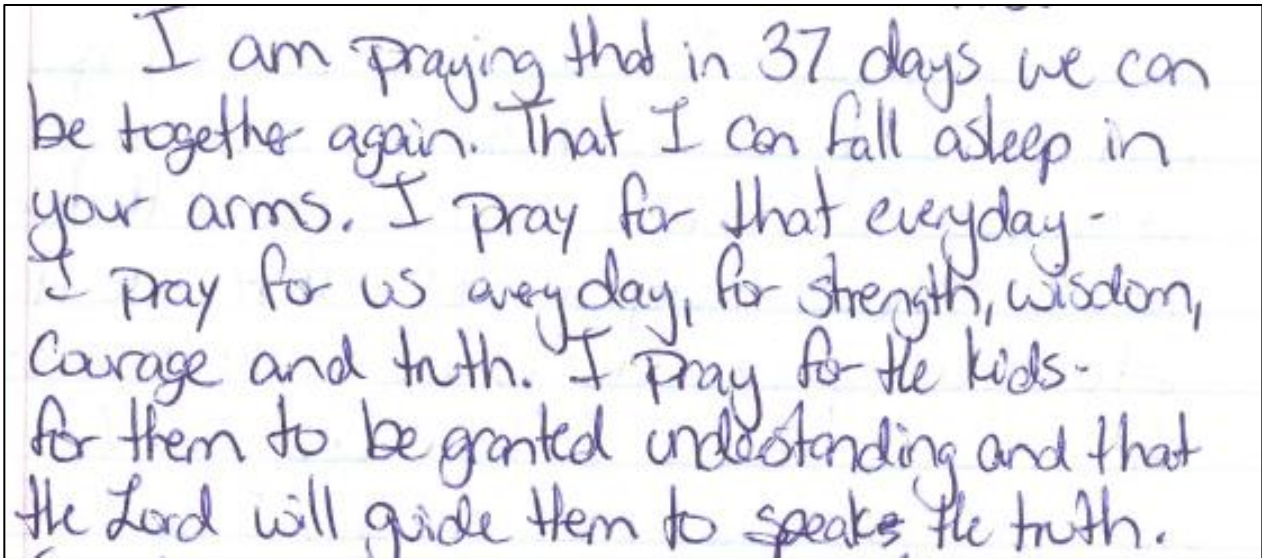 I am praying that in 37 days we can
be together again. That I can fall asleep in
your arms. I pray for that everyday -
I pray for us everyday, for strength, wisdom,
Courage and truth. I pray for the kids -
for them to be granted understanding and that
the Lord will guide them to speak the truth.